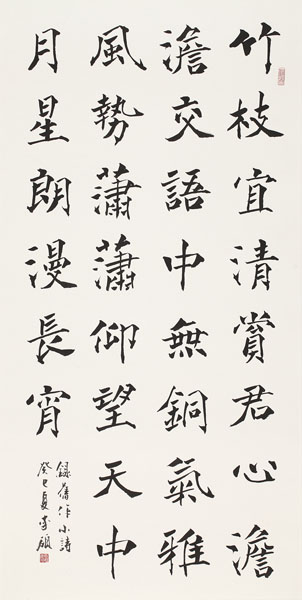 竹枝宜清賞君心澹
澹交語中無銅氣雅
風勢蕭蕭仰望天中
月星朗漫長宵
錄舊作小詩
癸巳夏李